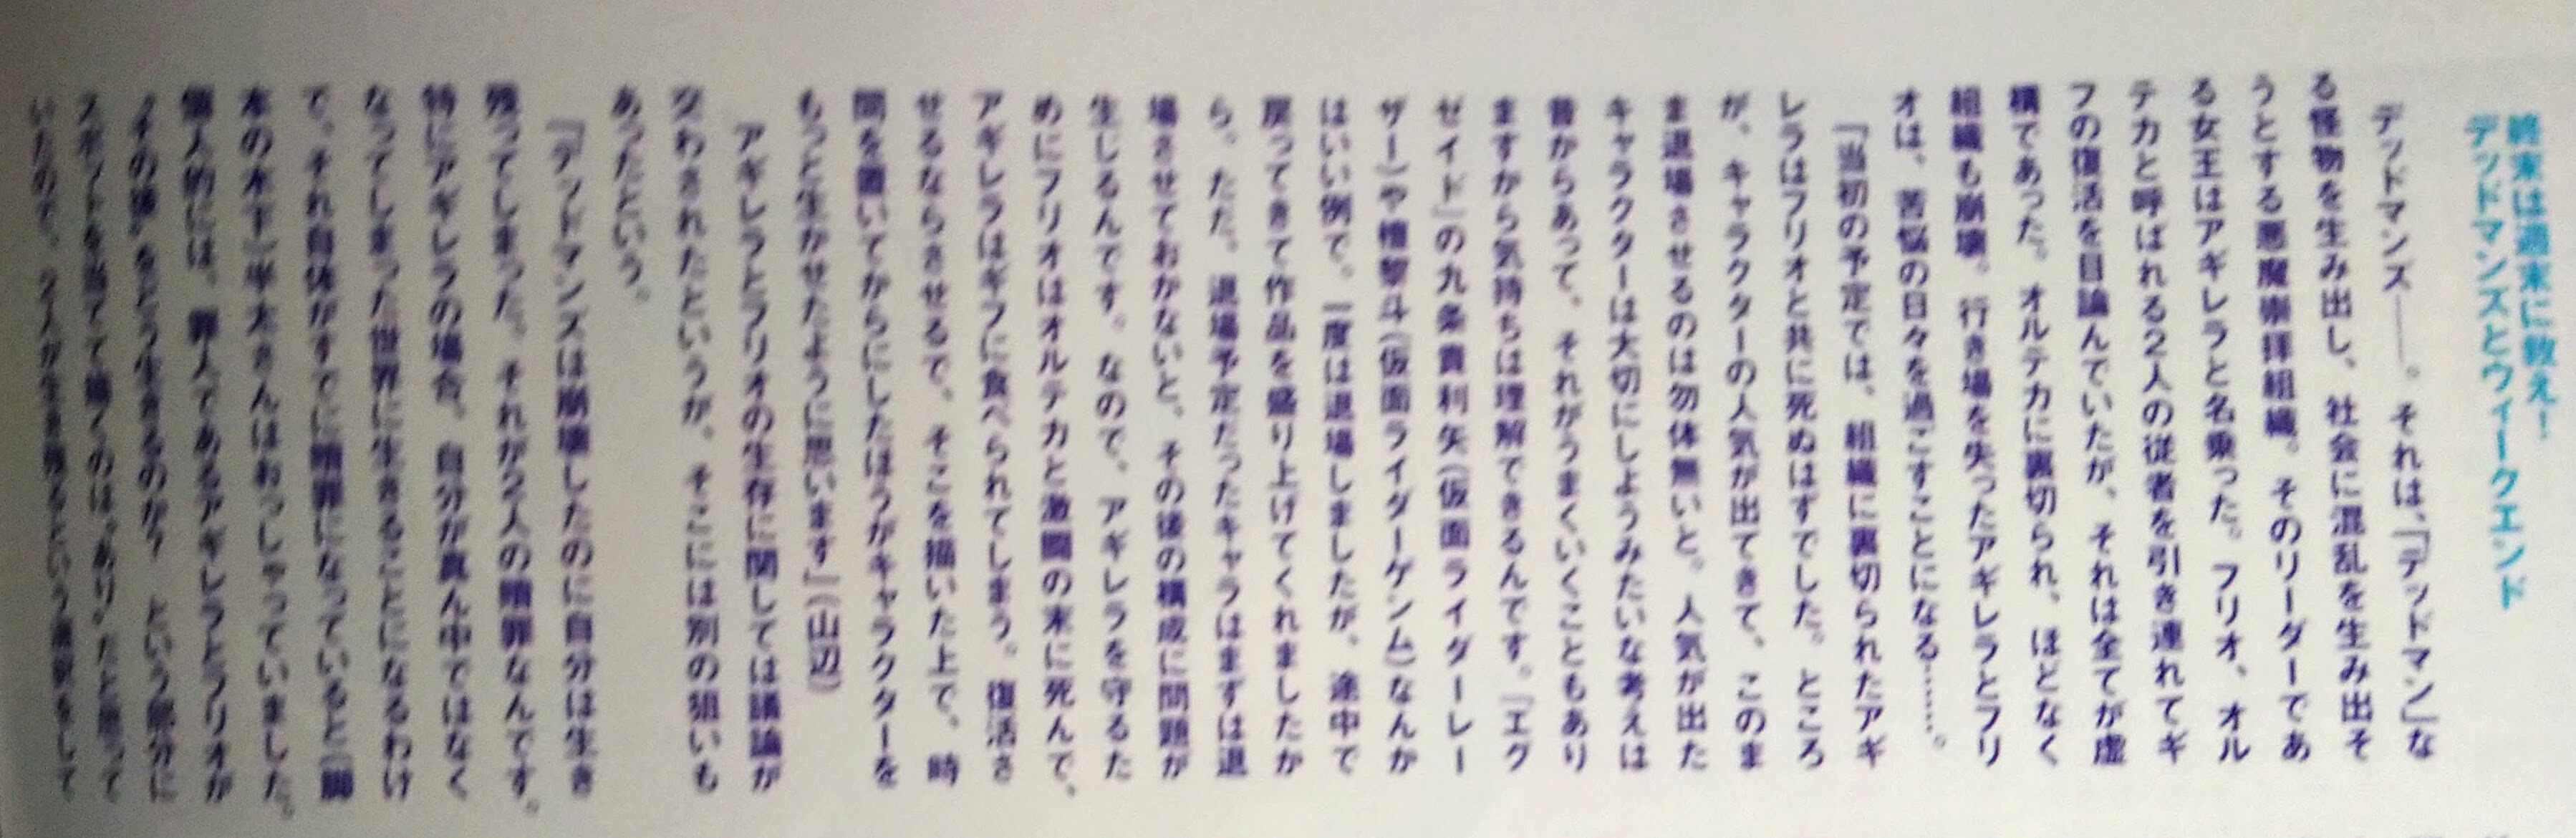 終末は週末に数え！
デッドマンズとウィークエンド
デッドマンズ――。それは、「デッドマン」な
る怪物を生み出し、社会に混乱を生み出そ
うとする悪魔崇拝組織。そのリーダーであ
る女王はアギレラと名乗った。フリオ、オル
テカと呼ばれる2人の従者を引き連れてギ
フの復活を目論んでいたが、それは全てが虚
構であった。オルテカに裏切られ、ほどなく
組織も崩壊。行き場を失ったアギレラとフリ
オは、苦悩の日々を過ごすことになる……。
「当初の予定では、組織に裏切られたアギ
レラはフリオと共に死ぬはずでした。ところ
が、キャラクターの人気が出てきて、このま
ま退場させるのは勿体無いと。人気が出た
キャラクターは大切にしようみたいな考えは
昔からあって、それがうまくいくこともあり
ますから気持ちは理解できるんです。『エグ
ゼイド』の九条貴利矢（仮面ライダーレー
ザー）や檀黎斗（仮面ライダーゲンム）なんか
はいい例で、一度は退場しましたが、途中で
戻ってきて作品を盛り上げてくれましたか
ら。ただ、退場予定だったキャラはまずは退
場させておかないと、その後の構成に問題が
生じるんです。なので、アギレラを守るた
めにフリオはオルテカと激闘の末に死んで、
アギレラはギフに食べられてしまう。復活さ
せるならさせるで、そこを描いた上で、時
間を置いてからにしたほうがキャラクターを
もっと生かせたように思います」（山辺）
アギレラとフリオの生存に関しては議論が
交わされたというが、そこには別の狙いも
あったという。
「デッドマンズは崩壊したのに自分は生き
残ってしまった。それが2人の贖罪なんです。
特にアギレラの場合、自分が真ん中ではなく
なってしまった世界に生きることになるわけ
で、それ自体がすでに贖罪になっていると（脚
本の木下）半太さんはおっしゃっていました。
個人的には、罪人であるアギレラとフリオが
“その後”をどう生きるのか？ という部分に
スポットを当てて描くのは“あり”だと思って
いたので、2人が生き残るという